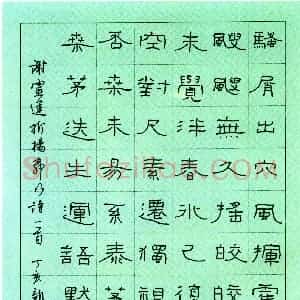 騷屑出穴風揮霍
颼颼無久搖皎皎
未覺泮春冰已復
空對尺素遷獨視
否桑未易系泰茅
桑茅迭生運語默
謝靈運折楊柳行詩一首 丁亥新